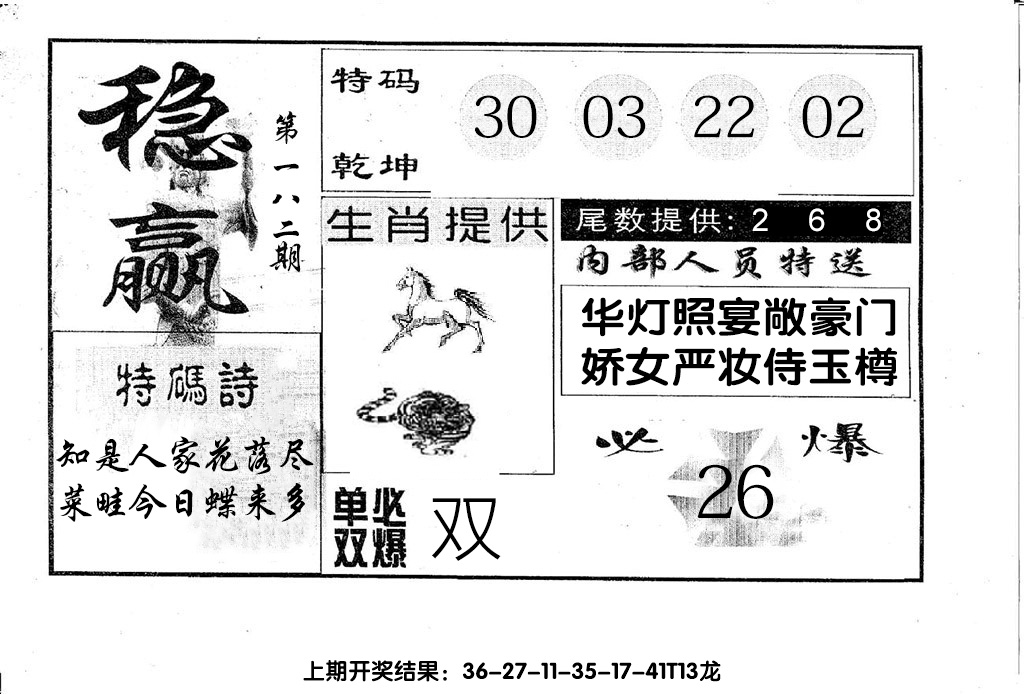 稳赢
第一八二期
特码
乾坤
30 03 22 02
生肖提供
尾数提供: 2 6 8
内部人员特送
华灯照宴敞豪门
娇女严妆侍玉樽
特碼詩
知是人家花落尽
菜畦今日蝶来多
单双必爆
双
必爆
26
上期开奖结果：36-27-11-35-17-41T13龙